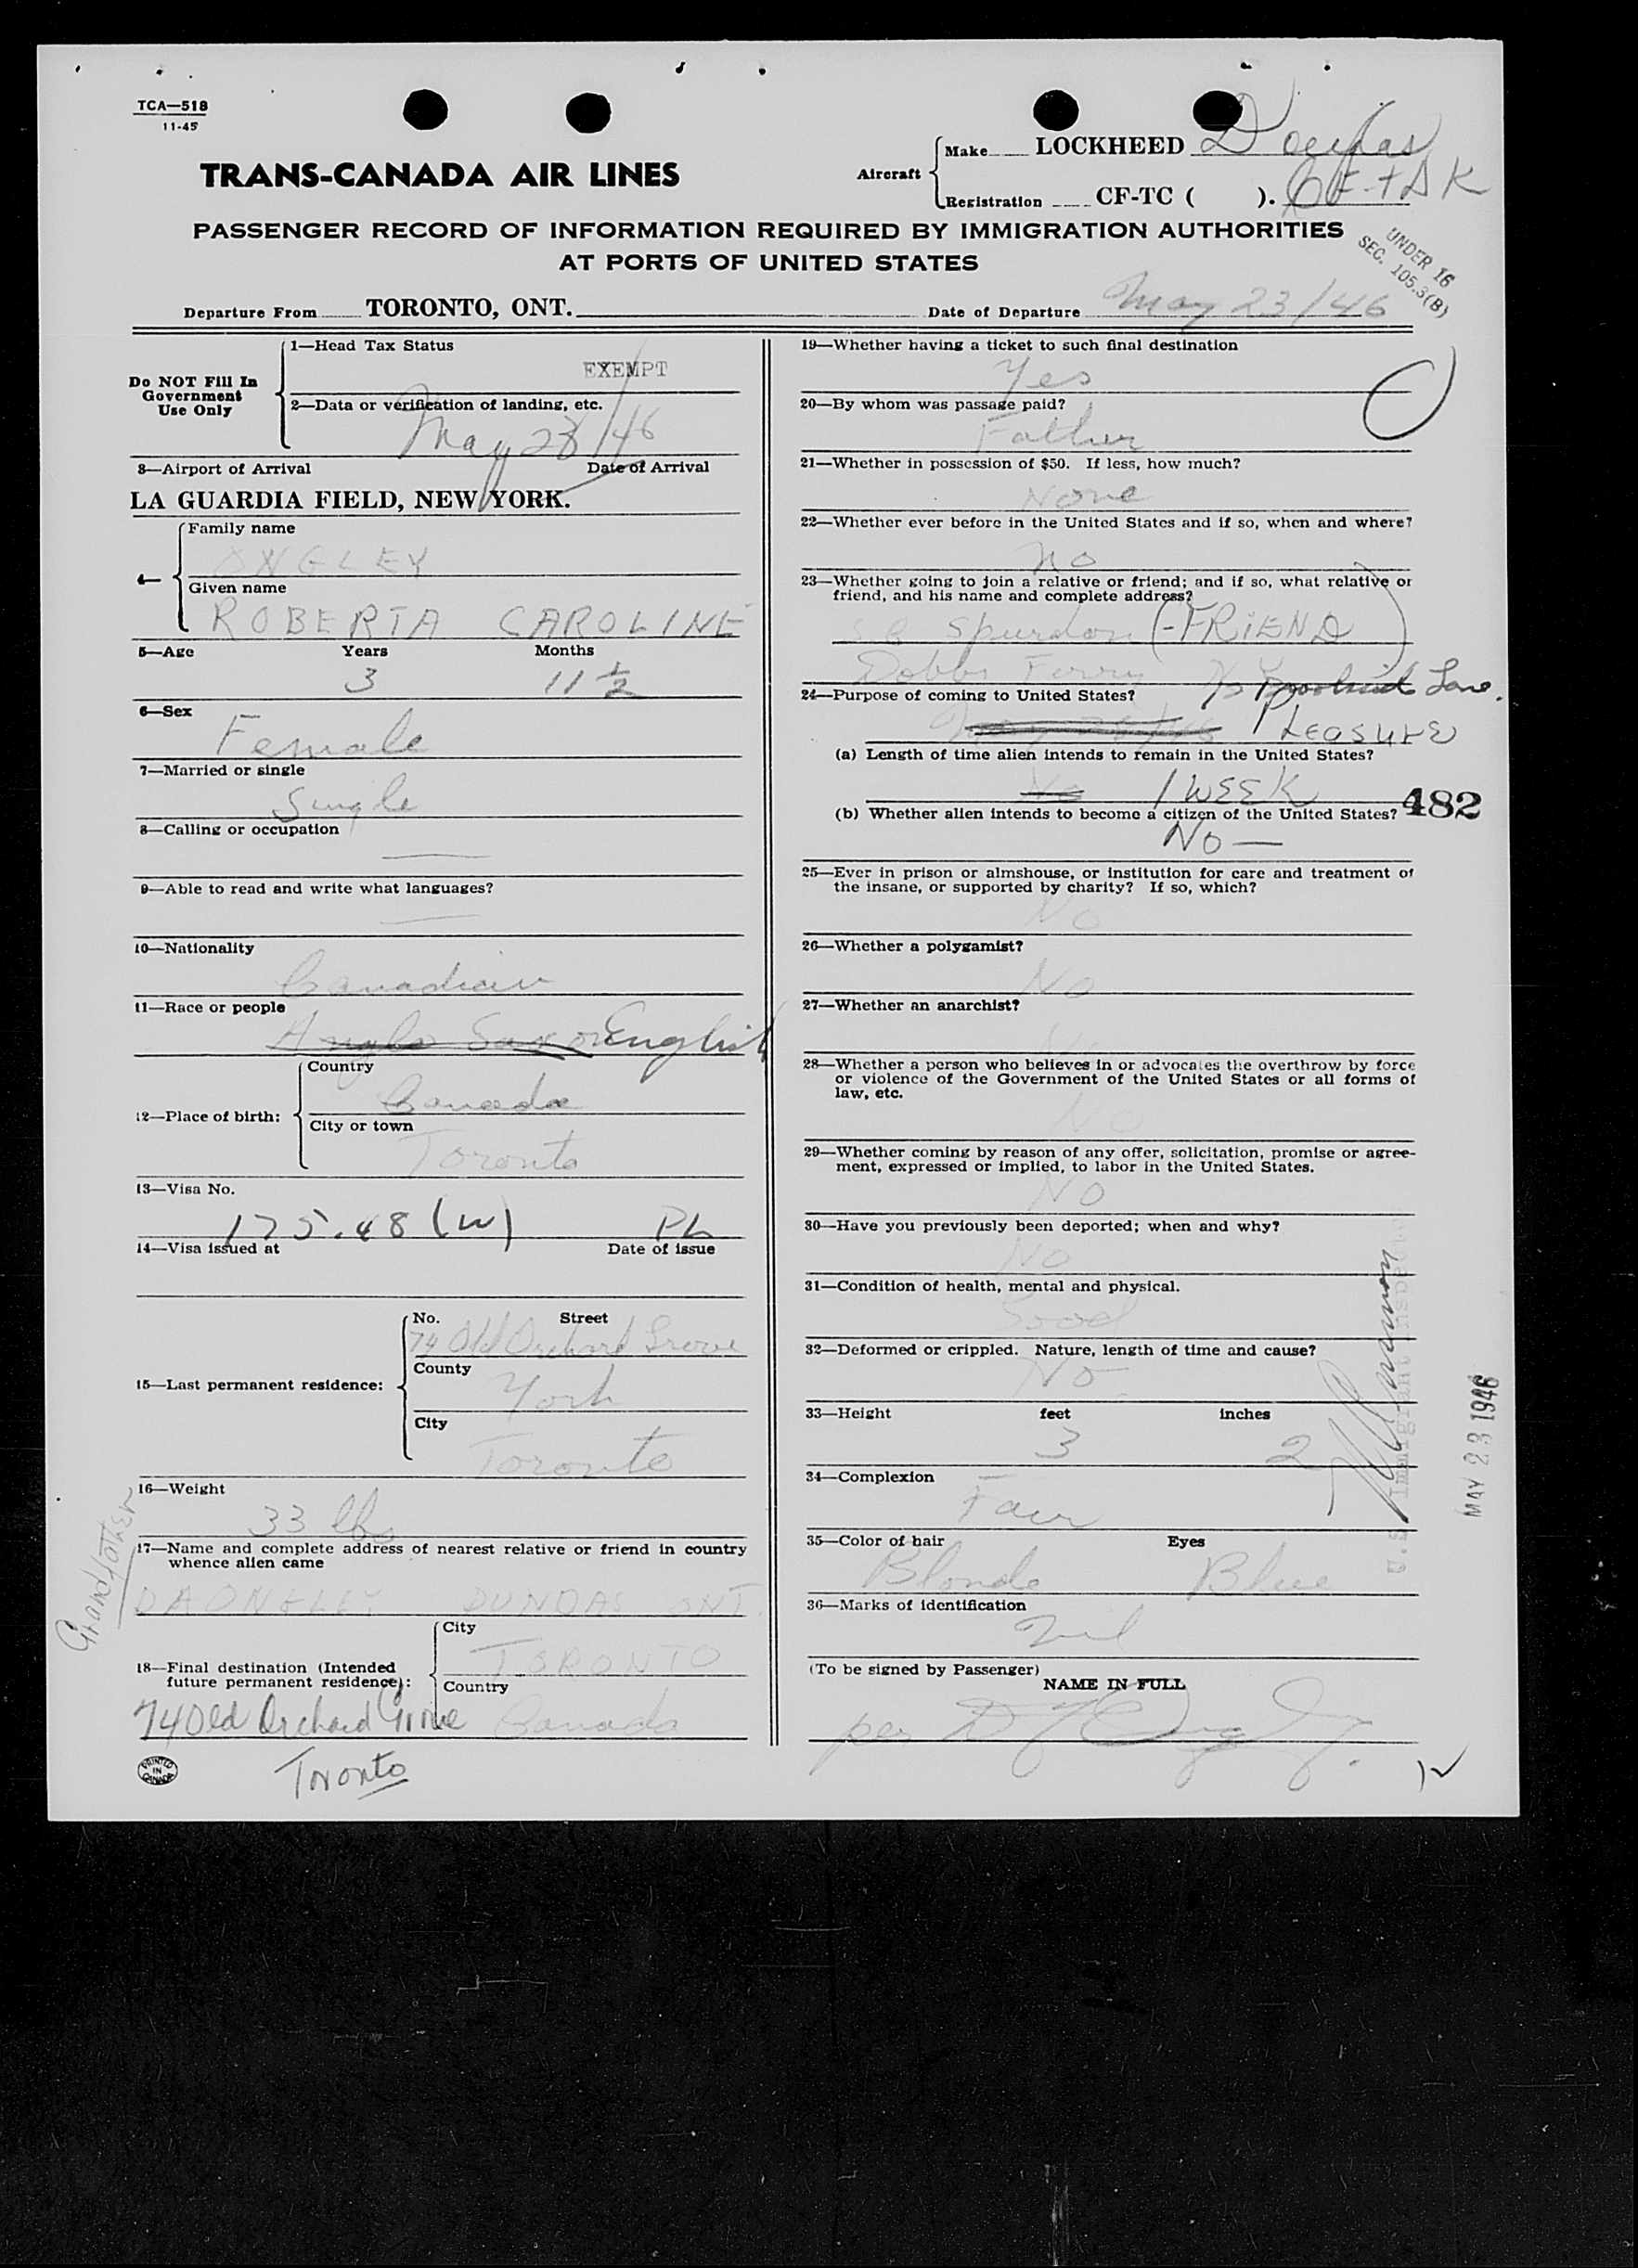 TCA—518
11-45
TRANS-CANADA AIR LINES
Aircraft
Make LOCKHEED Douglas
Registration CF-TC ( ). CF-TDK
PASSENGER RECORD OF INFORMATION REQUIRED BY IMMIGRATION AUTHORITIES
AT PORTS OF UNITED STATES
UNDER 16
SEC. 105.3(B)
Departure From TORONTO, ONT. Date of Departure May 23/46
Do NOT Fill In
Government
Use Only
1—Head Tax Status
EXEMPT
2—Data or verification of landing, etc.
May 23/46
3—Airport of Arrival Date of Arrival
LA GUARDIA FIELD, NEW YORK.
4—
Family name
ONGLEY
Given name
ROBERTA CAROLINE
5—Age Years Months
3 11 1/2
6—Sex
Female
7—Married or single
Single
8—Calling or occupation
—
9—Able to read and write what languages?
—
10—Nationality
Canadian
11—Race or people
Anglo Saxon English
12—Place of birth:
Country
Canada
City or town
Toronto
13—Visa No.
175.48 (W) PL
14—Visa issued at Date of issue
15—Last permanent residence:
No. Street
74 Old Orchard Grove
County
York
City
Toronto
16—Weight
33 lbs
17—Name and complete address of nearest relative or friend in country
whence alien came
GrandfatheR
D A ONGLEY DUNDAS ONT.
18—Final destination (Intended
future permanent residence):
City
TORONTO
Country
74 Old Orchard Grove Canada
Toronto
PRINTED
IN
CANADA
19—Whether having a ticket to such final destination
Yes
20—By whom was passage paid?
Father
21—Whether in possession of $50. If less, how much?
None
22—Whether ever before in the United States and if so, when and where?
no
23—Whether going to join a relative or friend; and if so, what relative or
friend, and his name and complete address?
Spurdon (-FRIEND)
Dobbs Ferry Lane.
24—Purpose of coming to United States?
PLEASURE
(a) Length of time alien intends to remain in the United States?
1 WEEK
482
(b) Whether alien intends to become a citizen of the United States?
No —
25—Ever in prison or almshouse, or institution for care and treatment of
the insane, or supported by charity? If so, which?
No
26—Whether a polygamist?
No
27—Whether an anarchist?
No
28—Whether a person who believes in or advocates the overthrow by force
or violence of the Government of the United States or all forms of
law, etc.
No
29—Whether coming by reason of any offer, solicitation, promise or agree-
ment, expressed or implied, to labor in the United States.
No
30—Have you previously been deported; when and why?
No
31—Condition of health, mental and physical.
Good
32—Deformed or crippled. Nature, length of time and cause?
No
33—Height feet inches
3 2
34—Complexion
Fair
35—Color of hair Eyes
Blonde Blue
36—Marks of identification
Nil
(To be signed by Passenger)
NAME IN FULL
per
MAY 23 1946